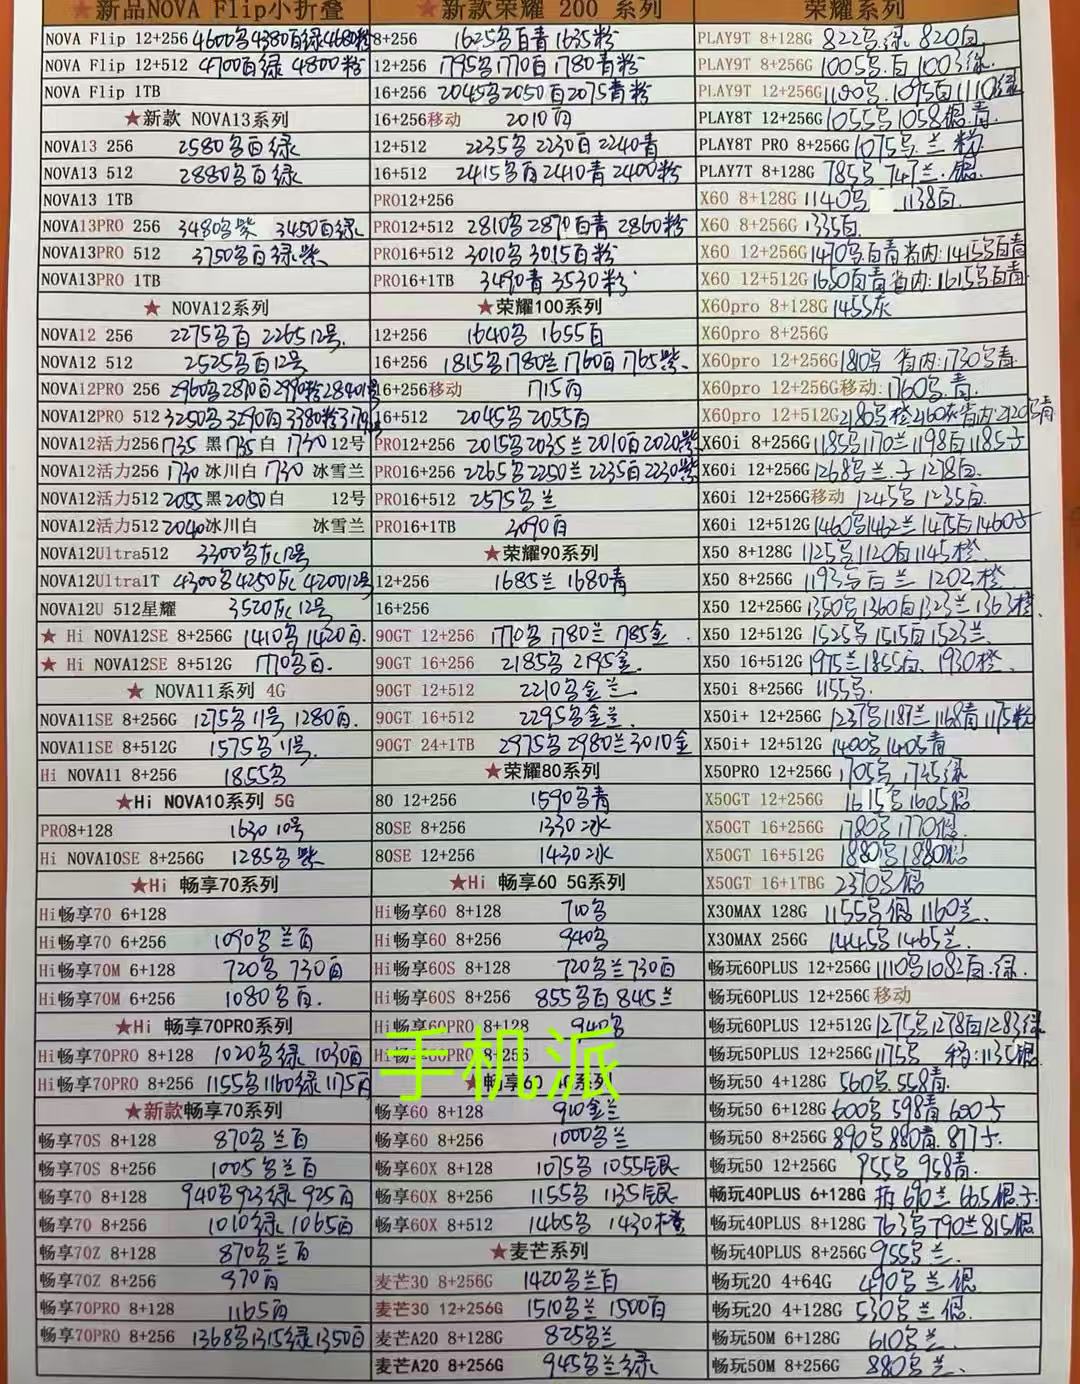 ★新品NOVA Flip小折叠
NOVA Flip 12+256 4600多4380百绿4680粉
NOVA Flip 12+512 4700百绿 4800粉
NOVA Flip 1TB
★新款 NOVA13系列
NOVA13 256 2580多百绿
NOVA13 512 2880多百绿
NOVA13 1TB
NOVA13PRO 256 3480多紫 3450百绿
NOVA13PRO 512 3750多百绿紫
NOVA13PRO 1TB
★ NOVA12系列
NOVA12 256 2275多百 2265 12号
NOVA12 512 2525多百12号
NOVA12PRO 256 2960多2870百2990粉2840
NOVA12PRO 512 3250多3290百3380粉
NOVA12活力256 1735 黑 1735 白 1730 12号
NOVA12活力256 1730 冰川白 1730 冰雪兰
NOVA12活力512 2055 黑 2050 白 12号
NOVA12活力512 2040 冰川白 冰雪兰
NOVA12Ultra512 3300多灰12号
NOVA12Ultra1T 4300多4250灰4200 12号
NOVA12U 512星耀 3520灰12号
★ Hi NOVA12SE 8+256G 1410多1420百
★ Hi NOVA12SE 8+512G 1770多百
★ NOVA11系列 4G
NOVA11SE 8+256G 1275多11号 1280百
NOVA11SE 8+512G 1575多11号
Hi NOVA11 8+256 1855多
★Hi NOVA10系列 5G
PRO8+128 1630 10号
Hi NOVA10SE 8+256G 1285多紫
★Hi 畅享70系列
Hi畅享70 6+128
Hi畅享70 6+256 1090多兰百
Hi畅享70M 6+128 720多 730百
Hi畅享70M 6+256 1080多百
★Hi 畅享70PRO系列
Hi畅享70PRO 8+128 1020多绿 1030百
Hi畅享70PRO 8+256 1155多1160绿1175百
★新款畅享70系列
畅享70S 8+128 870多兰百
畅享70S 8+256 1005多兰百
畅享70 8+128 940多923绿925百
畅享70 8+256 1010绿1065百
畅享70Z 8+128 870多兰百
畅享70Z 8+256 970百
畅享70PRO 8+128 1165百
畅享70PRO 8+256 1368多1315绿1350百
★新款荣耀 200 系列
8+256 1625多百青 1635粉
12+256 1795多1770百1780青粉
16+256 2045多2050百2075青粉
16+256移动 2010百
12+512 2235多2230百2240青
16+512 2415多百2410青2400粉
PRO12+256
PRO12+512 2810多2870百青 2860粉
PRO16+512 3010多3015百粉
PRO16+1TB 3490青 3530粉
★荣耀100系列
12+256 1640多 1655百
16+256 1815多1780兰1760百1765紫
16+256移动 1715百
16+512 2045多2055百
PRO12+256 2015多2035兰2010百2020紫
PRO16+256 2265多2250兰2235百2230紫
PRO16+512 2575多兰
PRO16+1TB 3090百
★荣耀90系列
12+256 1685兰 1680青
16+256
90GT 12+256 1770多 1780兰 1785金
90GT 16+256 2185多 2195金
90GT 12+512 2210多金兰
90GT 16+512 2295多金兰
90GT 24+1TB 2975多2980兰3010金
★荣耀80系列
80 12+256 1590多青
80SE 8+256 1330冰
80SE 12+256 1430冰
★Hi 畅享60 5G系列
Hi畅享60 8+128 710多
Hi畅享60 8+256 940多
Hi畅享60S 8+128 720多兰730百
Hi畅享60S 8+256 855多百845兰
Hi畅享60PRO 8+128 940多
Hi畅享60PRO 8+256
★畅享60 4G系列
畅享60 8+128 910金兰
畅享60 8+256 1000多兰
畅享60X 8+128 1075多1055银
畅享60X 8+256 1155多 1135银
畅享60X 8+512 1465多 1430橙
★麦芒系列
麦芒30 8+256G 1420多兰百
麦芒30 12+256G 1510多兰 1500百
麦芒A20 8+128G 825多兰
麦芒A20 8+256G 945多兰绿
荣耀系列
PLAY9T 8+128G 822多绿820百
PLAY9T 8+256G 1005多百1003绿
PLAY9T 12+256G 1100多1095百1110绿
PLAY8T 12+256G 1055多1058银青
PLAY8T PRO 8+256G 1075多兰粉
PLAY7T 8+128G 785多747兰银
X60 8+128G 1140多 1138百
X60 8+256G 1335百
X60 12+256G 1470多百青省内:1415多百青
X60 12+512G 1650百青省内:1615多百青
X60pro 8+128G 1455灰
X60pro 8+256G
X60pro 12+256G 1810多 省内:1730多青
X60pro 12+256G移动 1760多青
X60pro 12+512G 2180多橙2160灰省内:2120多青
X60i 8+256G 1185多1170兰1198百1185子
X60i 12+256G 1268多兰子1278百
X60i 12+256G移动 1245多1235百
X60i 12+512G 1460多1462兰1475百1460子
X50 8+128G 1125多1120百1145橙
X50 8+256G 1193多百兰 1202橙
X50 12+256G 1350多1360百1323兰1363橙
X50 12+512G 1525多1515百1523兰
X50 16+512G 1975兰1855百 1930橙
X50i 8+256G 1155多
X50i+ 12+256G 1237多1187兰1168青1175粉
X50i+ 12+512G 1400多1405青
X50PRO 12+256G 1705多1745绿
X50GT 12+256G 1615多1605银
X50GT 16+256G 1780多1770银
X50GT 16+512G 1880多1880银
X50GT 16+1TBG 2310多银
X30MAX 128G 1155多银1160兰
X30MAX 256G 1445多1465兰
畅玩60PLUS 12+256G 1110多1082百绿
畅玩60PLUS 12+256G 移动
畅玩60PLUS 12+512G 1275多1278百1283绿
畅玩50PLUS 12+256G 1175多 移:1135银
畅玩50 4+128G 560多558青
畅玩50 6+128G 600多598青600子
畅玩50 8+256G 890多880青877子
畅玩50 12+256G 955多958青
畅玩40PLUS 6+128G 拆690兰665银子
畅玩40PLUS 8+128G 763多790兰815银
畅玩40PLUS 8+256G 955多兰
畅玩20 4+64G 490多兰银
畅玩20 4+128G 530多兰银
畅玩50M 6+128G 610多兰
畅玩50M 8+256G 880多兰
手机派